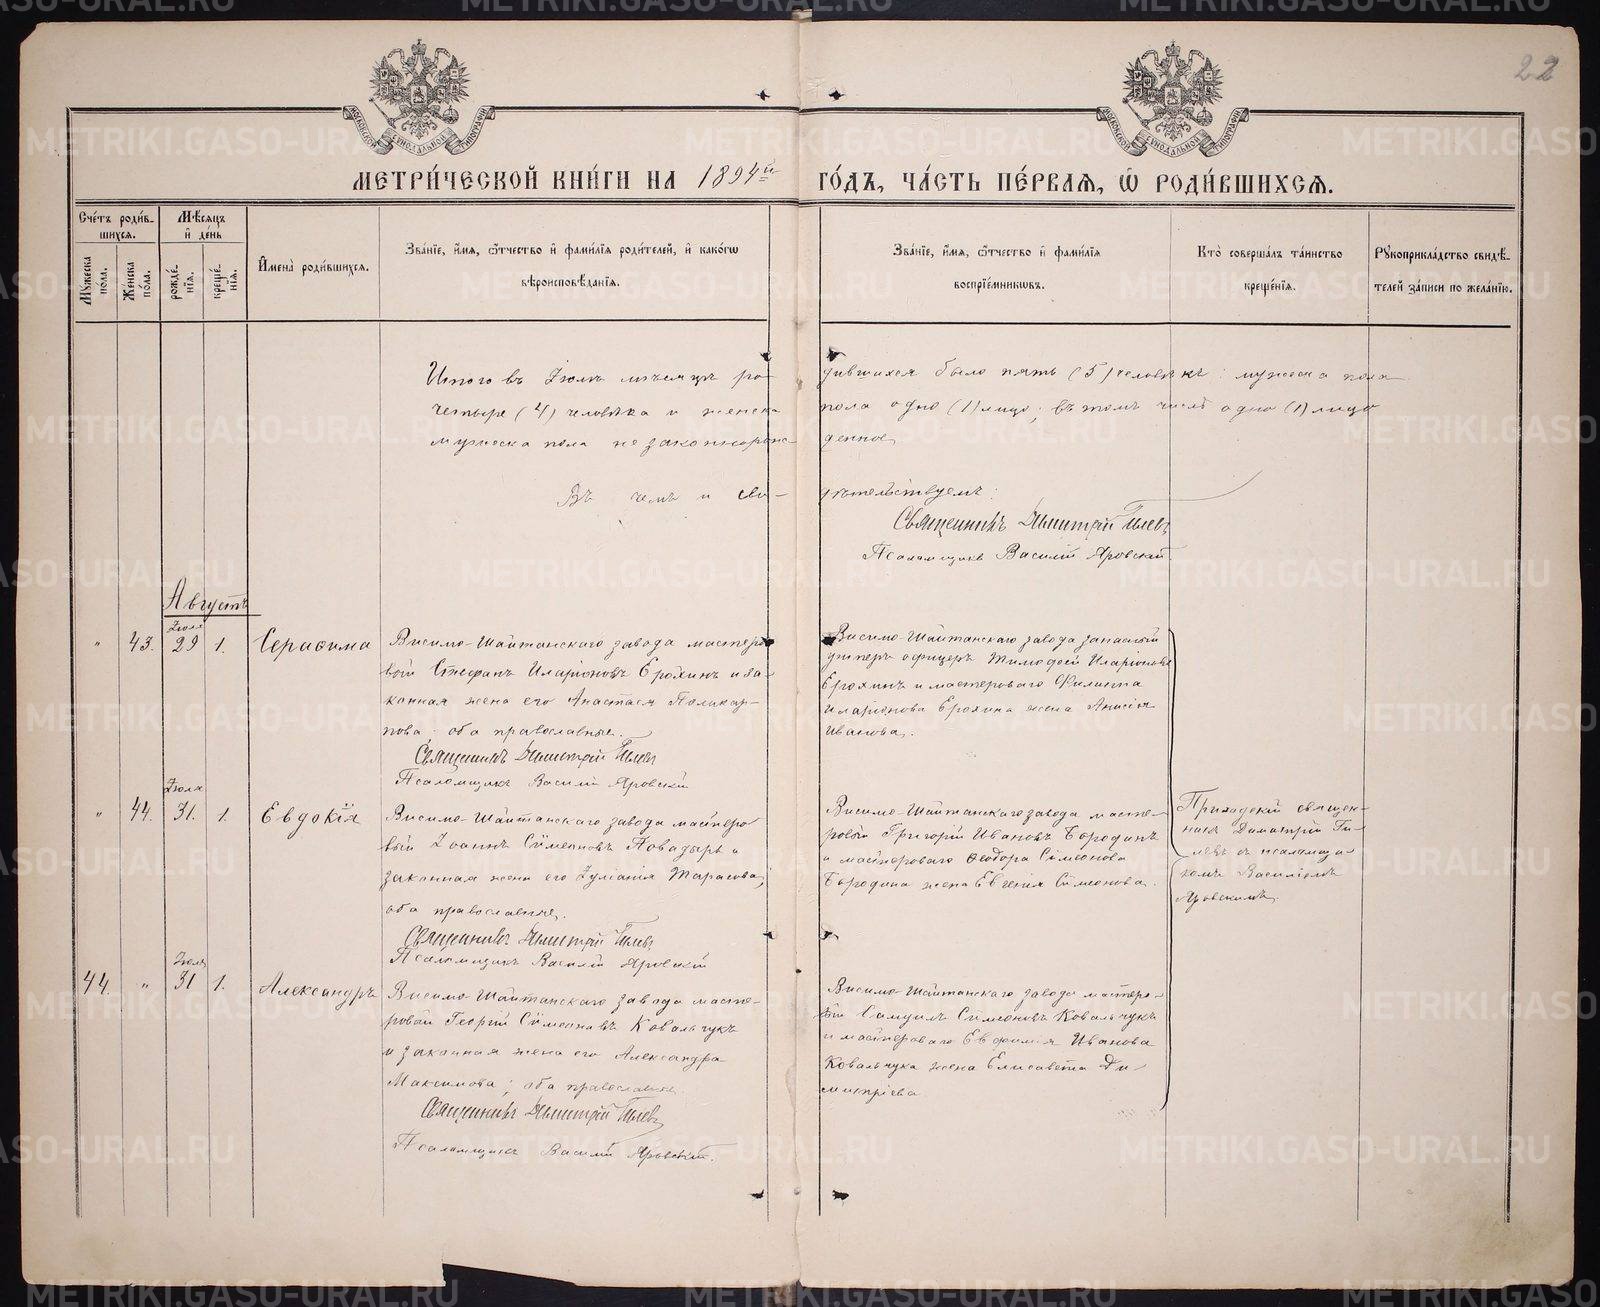 22
МЕТРИ́ЧЕСКОЙ КНИ́ГИ НА 1894й ГО́ДЪ, ЧА́СТЬ ПЕ́РВАЯ, Ѡ҆ РОДИ́ВШИХСЯ.
Сче́тъ роди́в-
шихся.
Мѣ́сяцъ
и҆ де́нь
Мꙋ́жеска по́ла.
Же́нска по́ла.
рожде́-
нїѧ.
креще́-
нїѧ.
И҆мена̀ роди́вшихся.
Зва́нїе, и҆́мя, ѻ҆́тчество и҆ фами́лїя роди́телей, и҆ како́гѡ
вѣроисповѣ́данїя.
Зва́нїе, и҆́мя, ѻ҆́тчество и҆ фами́лїя
воспрїе́мниковъ.
Кто̀ соверша́лъ та́инство
креще́нїя.
Рꙋкоприкла́дство свидѣ́-
телей за́писи по жела́нїю.
Итого въ Іюлѣ мѣсяцѣ ро-
дившихся было пять (5) человѣкъ: мужеска пола
четыре (4) человѣка и женска
пола одно (1) лицо; въ томъ числѣ одно (1) лицо
мужеска пола незаконнорож-
денное.
Въ чемъ и сви-
дѣтельствуемъ:
Священникъ Димитрій Гилевъ
Псаломщикъ Василій Яровскій.
Августъ
Іюля
" 43. 29 1. Серафима
Висимо-Шайтанскаго завода мастеро-
вой Стефанъ Иларіоновъ Ерохинъ и за-
конная жена его Анастасія Поликар-
пова; оба православные.
Священникъ Димитрій Гилевъ
Псаломщикъ Василій Яровскій
Висимо-Шайтанскаго завода запасный
унтеръ офицеръ Тимофей Иларіоновъ
Ерохинъ и мастероваго Филиппа
Иларіонова Ерохина жена Анисія
Иванова.
Іюля
" 44. 31. 1. Евдокія
Висимо-Шайтанскаго завода мастеро-
вой Іоаннъ Сѵмеоновъ и
законная жена его Іуліанія Тарасова;
оба православные.
Священникъ Димитрій Гилевъ
Псаломщикъ Василій Яровскій
Висимо-Шайтанскаго завода масте-
ровой Григорій Ивановъ Бородинъ
и мастероваго Ѳеодора Сѵмеонова
Бородина жена Евгенія Сѵмеонова.
Приходскій священ-
никъ Димитрій Ги-
левъ съ псаломщи-
комъ Василіемъ
Яровскимъ.
Іюля
44. " 31 1. Александръ
Висимо-Шайтанскаго завода масте-
ровой Георгій Сѵмеоновъ Ковальчукъ
и законная жена его Александра
Максимова; оба православные
Священникъ Димитрій Гилевъ
Псаломщикъ Василій Яровскій.
Висимо-Шайтанскаго завода мастеро-
вой Самуилъ Сѵмеоновъ Ковальчукъ
и мастероваго Евфимія Иванова
Ковальчука жена Елисавета Ди-
митріева
METRIKI.GASO-URAL.RU